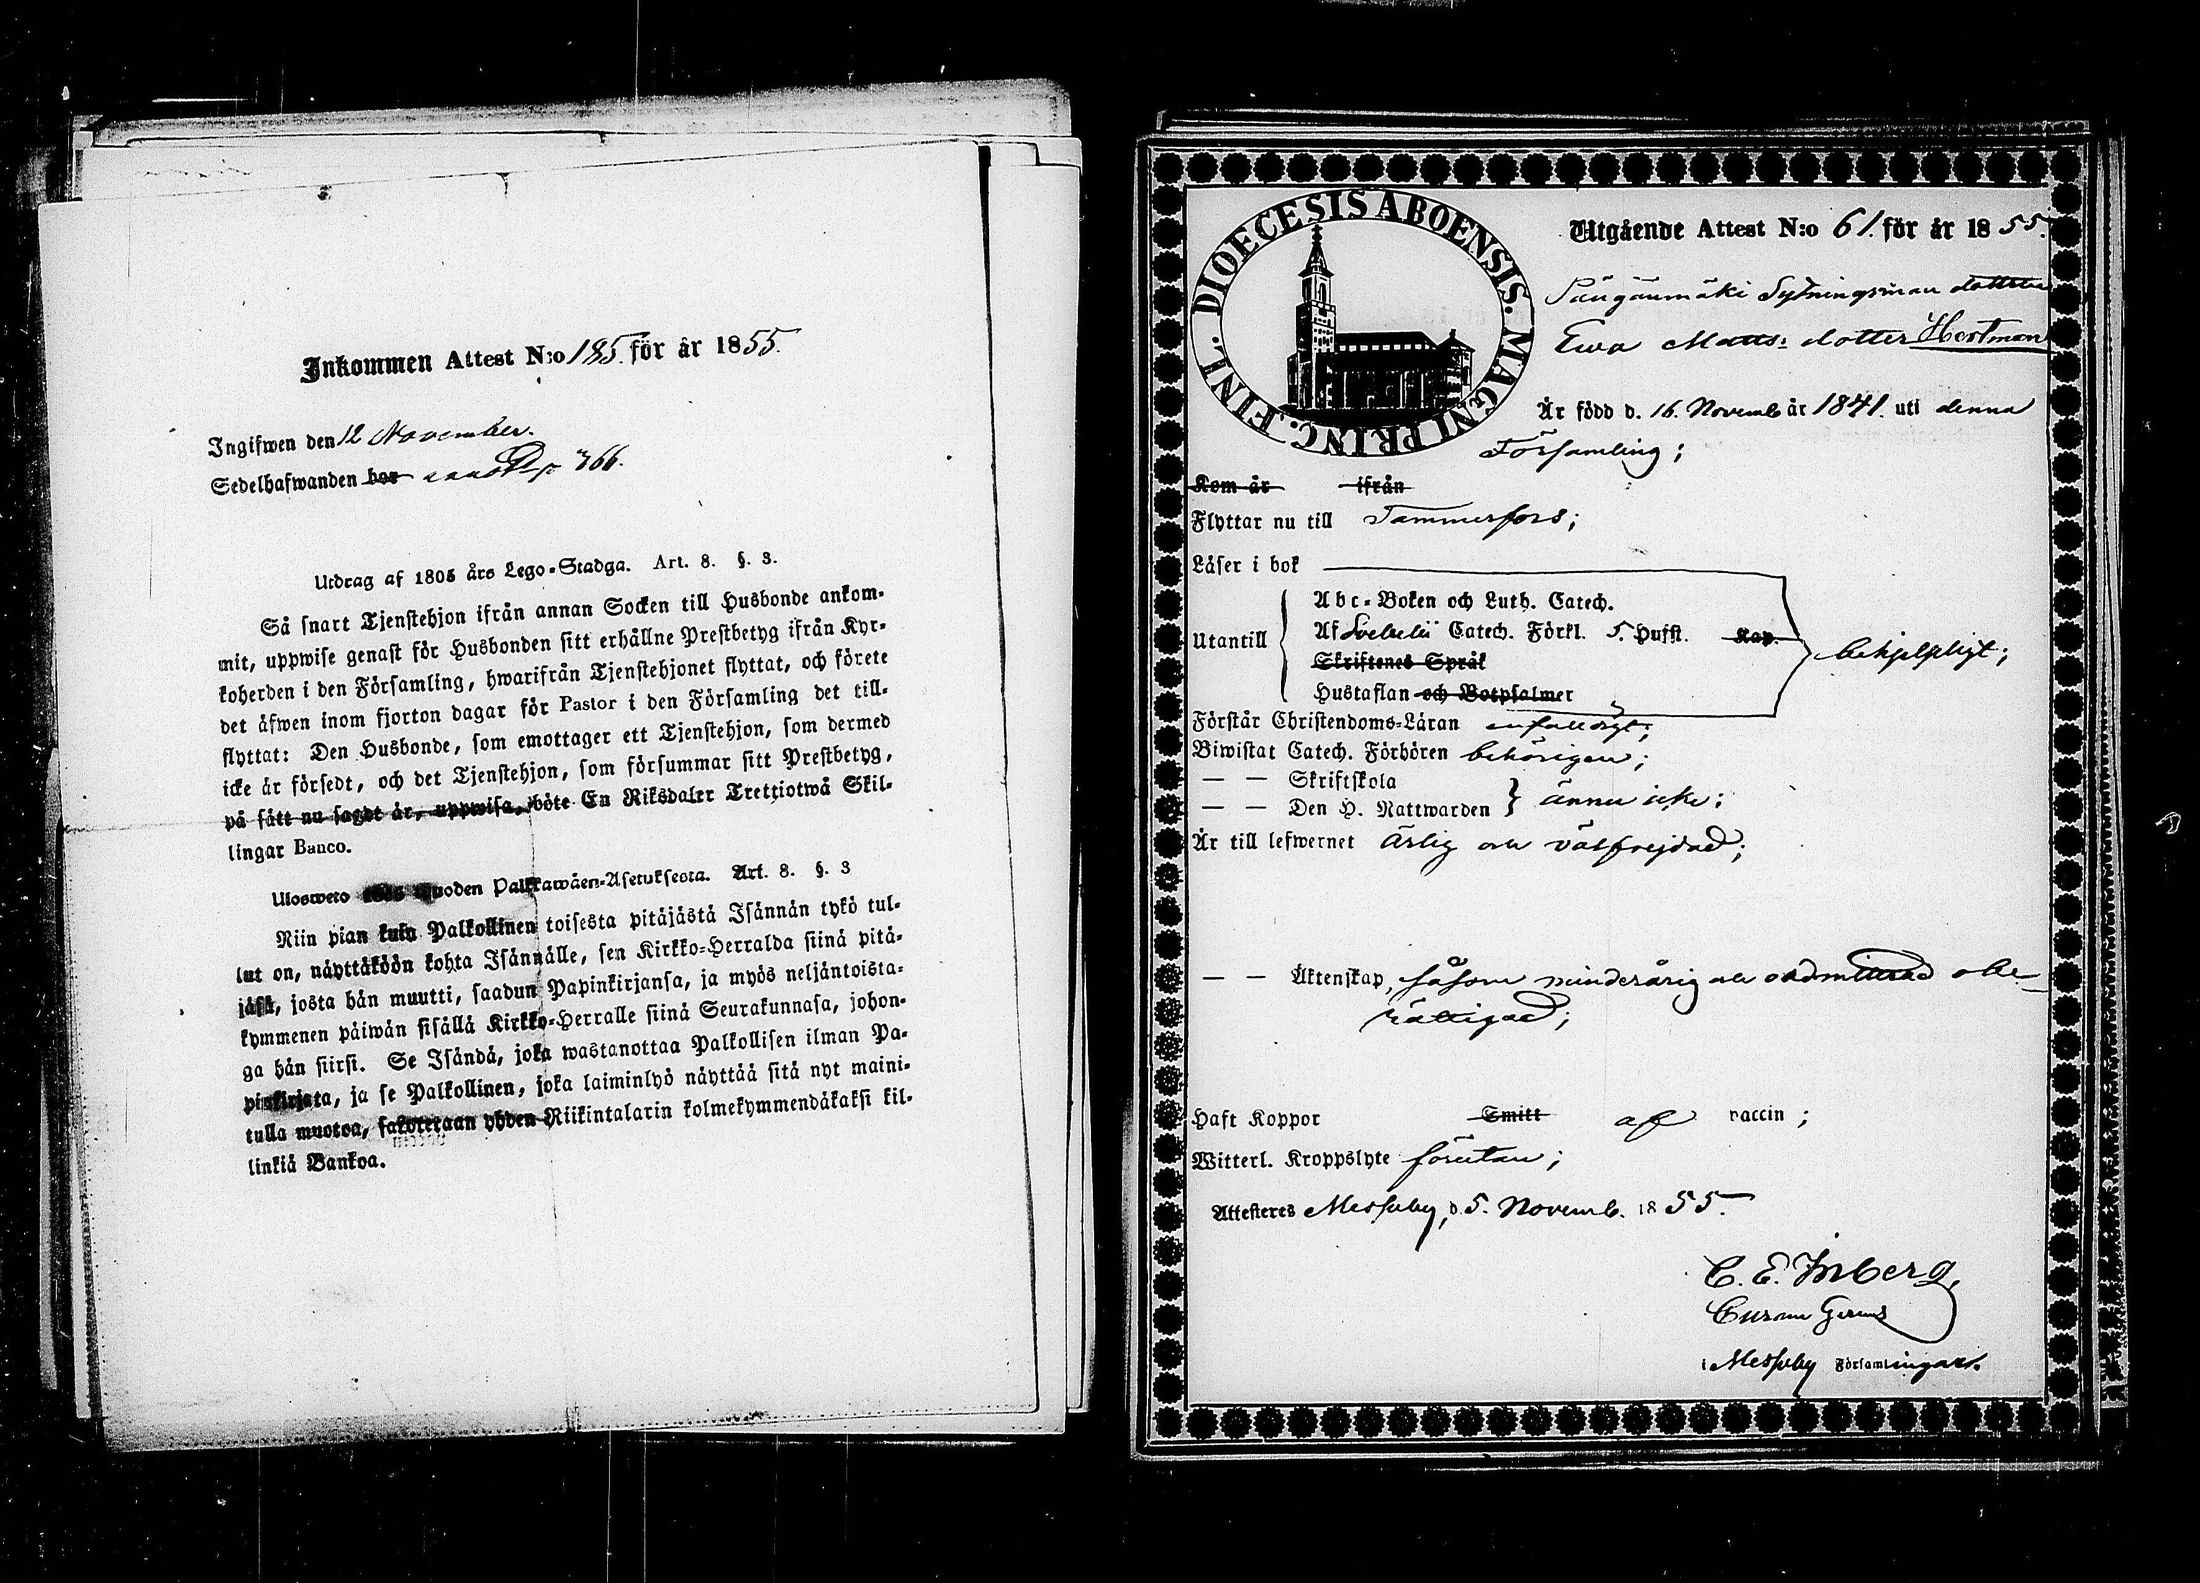 Inkommen Attest N:o 185. för år 1855.
Ingifwen den 12 November.
Sedelhafwanden bor 366.
Utdrag af 1805 års Lego-Stadga. Art. 8. §. 3.
Så snart Tjenstehjon ifrån annan Socken till Husbonde ankom-
mit, uppwise genast för Husbonden sitt erhållne Prestbetyg ifrån Kyr-
koherden i den Församling, hwarifrån Tjenstehjonet flyttat, och förete
det äfwen inom fjorton dagar för Pastor i den Församling det till-
flyttat: Den Husbonde, som emottager ett Tjenstehjon, som dermed
icke är försedt, och det Tjenstehjon, som försummar sitt Prestbetyg,
på sätt nu sagdt är, uppwisa, böte En Riksdaler Trettiotwå Skil-
lingar Banco.
Ulosweto Wuoden Palkkawäen-Asetuksesta. Art. 8. §. 3
Niin pian kuin Palkollinen toisesta pitäjästä Isännän tykö tul-
lut on, näyttäköön kohta Isännälle, sen Kirkko-Herralda siinä pitä-
jäsä, josta hän muutti, saadun Papinkirjansa, ja myös neljäntoista-
kymmenen päiwän sisällä Kirkko-Herralle siinä Seurakunnasa, johon-
ga hän siirsi. Se Isändä, joka wastanottaa Palkollisen ilman Pa-
pinkirjata, ja se Palkollinen, joka laiminlyö näyttää sitä nyt maini-
tulla muotoa, sakotetaan yhden Riikintalarin kolmekymmendäkaksi kil-
linkiä Bankoa.
DIOECESIS ABOENSIS. MAGNI PRINC. FINL.
Utgående Attest N:o 61. för år 1855.
Pängänmäki Sytningsman dotter
Ewa Matts: dotter Hortman
Är född d. 16. Novemb år 1841. uti denna
Församling;
Kom år ifrån
Flyttar nu till Tammerfors;
Läser i bok
Abc-Boken och Luth. Catech.
Utantill Af Svebelii Catech. Förkl. 5. Hufst. Kap. behjelpligt;
Skriftenes Språk
Hustaflan och Botpsalmer
Förstår Christendoms-Läran enfalldigt;
Biwistat Catech. Förhören behörigen;
— — Skriftskola
— — Den H. Nattwarden ännu icke;
Är till lefwernet Ärlig och välfrejdad;
— — Äktenskap, såsom minderårig och oadmitterad obe-
rättigad;
Haft Koppor Smitt af vaccin;
Witterl. Kroppslyte förutan;
Attesteres Messuby, d. 5. Novemb. 1855.
C. E. Inberg,
Curam Gerens
i Messuby Församlingar.